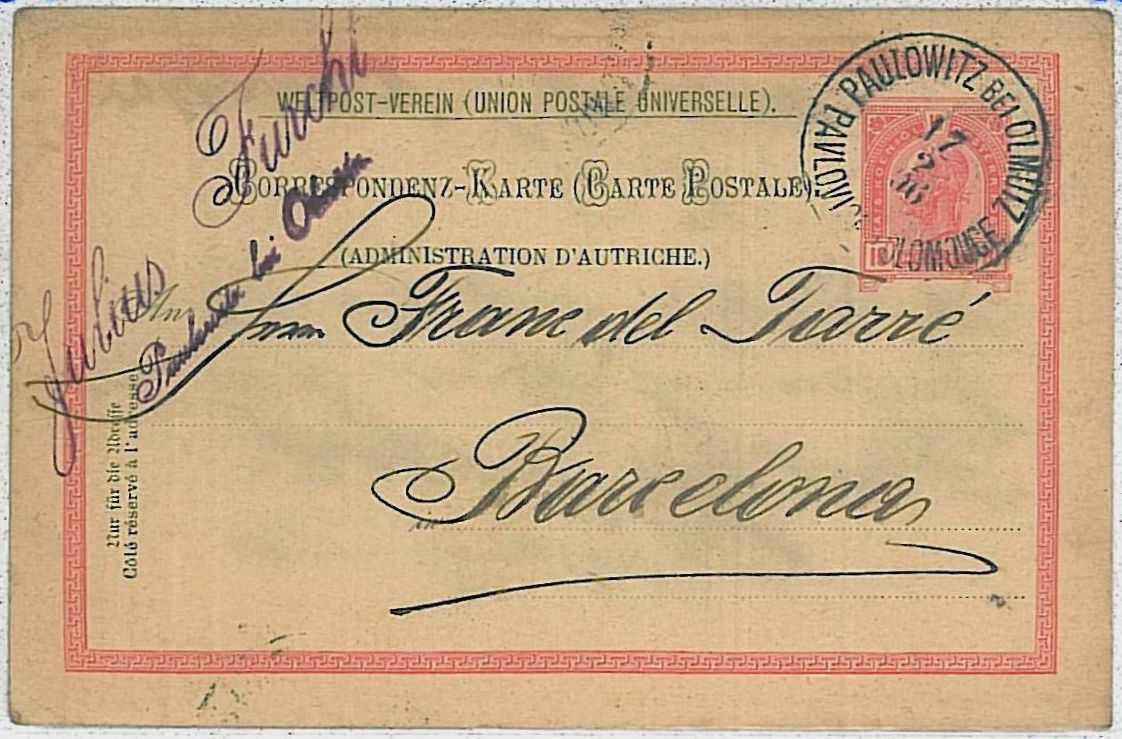 WELTPOST-VEREIN (UNION POSTALE UNIVERSELLE).
CORRESPONDENZ-KARTE (CARTE POSTALE).
(ADMINISTRATION D'AUTRICHE.)
PAULOWITZ BEI OLMÜTZ
17
2
Julius Furcht
Paulowitz bei Olmütz
An Herrn Franc del Tarré
in Barcelona
Nur für die Adresse
Côté réservé à l'adresse